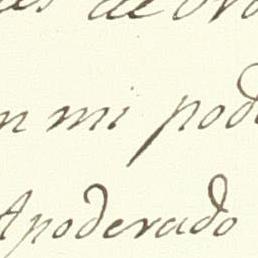 de
n mi pode
Apoderado